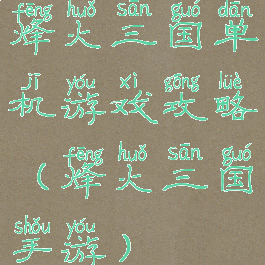 fēng huǒ sān guó dān
烽火三国单
jī yóu xì gōng lüè
机游戏攻略
fēng huǒ sān guó
（烽火三国
shǒu yóu
手游）